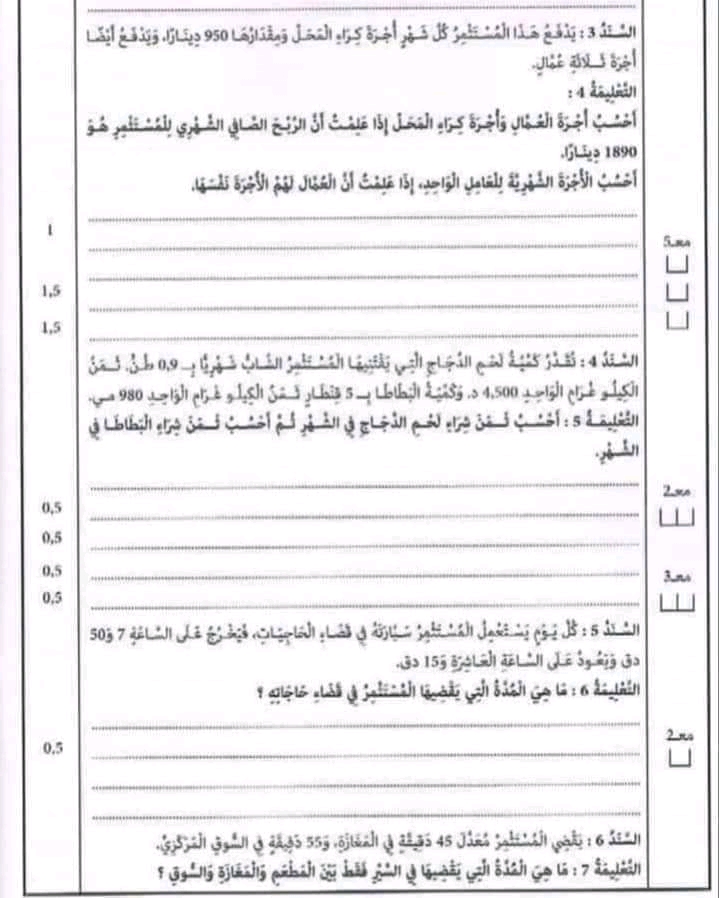 السَّنَدُ 3 : يَدْفَعُ هَذَا الْمُسْتَثْمِرُ كُلَّ شَهْرٍ أُجْرَةَ كِرَاءِ الْمَحَلِّ وَمِقْدَارُهَا 950 دِينَارًا، وَيَدْفَعُ أَيْضًا
أُجْرَةَ ثَلَاثَةِ عُمَّالٍ.
التَّعْلِيمَةُ 4 :
أَحْسُبُ أُجْرَةَ الْعُمَّالِ وَأُجْرَةَ كِرَاءِ الْمَحَلِّ إِذَا عَلِمْتُ أَنَّ الرِّبْحَ الصَّافِي الشَّهْرِي لِلْمُسْتَثْمِرِ هُوَ
1890 دِينَارًا.
أَحْسُبُ الْأُجْرَةَ الشَّهْرِيَّةَ لِلْعَامِلِ الْوَاحِدِ، إِذَا عَلِمْتُ أَنَّ الْعُمَّالَ لَهُمْ الْأُجْرَةَ نَفْسَهَا.
1
مع5
1,5
1,5
السَّنَدُ 4 : تُقَدَّرُ كَمِّيَّةُ لَحْمِ الدَّجَاجِ الَّتِي يَقْتَنِيهَا الْمُسْتَثْمِرُ الشَّابُّ شَهْرِيًّا بِـ 0,9 طنّ. ثَمَنُ
الْكِيلُو غْرَامِ الْوَاحِدِ 4,500 د. وَكَمِّيَّةُ الْبَطَاطَا بِـ 5 قِنْطَارٍ ثَمَنُ الْكِيلُو غْرَامِ الْوَاحِدِ 980 مي.
التَّعْلِيمَةُ 5 : أَحْسُبُ ثَمَنَ شِرَاءِ لَحْمِ الدَّجَاجِ فِي الشَّهْرِ ثُمَّ أَحْسُبُ ثَمَنَ شِرَاءِ الْبَطَاطَا فِي
الشَّهْرِ.
مع2
0,5
0,5
0,5
مع3
0,5
السَّنَدُ 5 : كُلَّ يَوْمٍ يَسْتَعْمِلُ الْمُسْتَثْمِرُ سَيَّارَتَهُ فِي قَضَاءِ الْحَاجِيَاتِ، فَيَخْرُجُ عَلَى السَّاعَةِ 7 وَ50
دق وَيَعُودُ عَلَى السَّاعَةِ الْعَاشِرَةِ وَ15 دق.
التَّعْلِيمَةُ 6 : مَا هِيَ الْمُدَّةُ الَّتِي يَقْضِيهَا الْمُسْتَثْمِرُ فِي قَضَاءِ حَاجَاتِهِ ؟
مع2
0,5
السَّنَدُ 6 : يَقْضِي الْمُسْتَثْمِرُ مُعَدَّلَ 45 دَقِيقَةٍ فِي الْمَغَازَةِ، وَ55 دَقِيقَةٍ فِي السُّوقِ الْمَرْكَزِيِّ.
التَّعْلِيمَةُ 7 : مَا هِيَ الْمُدَّةُ الَّتِي يَقْضِيهَا فِي السَّيْرِ فَقَطْ بَيْنَ الْمَطْعَمِ وَالْمَغَازَةِ وَالسُّوقِ ؟